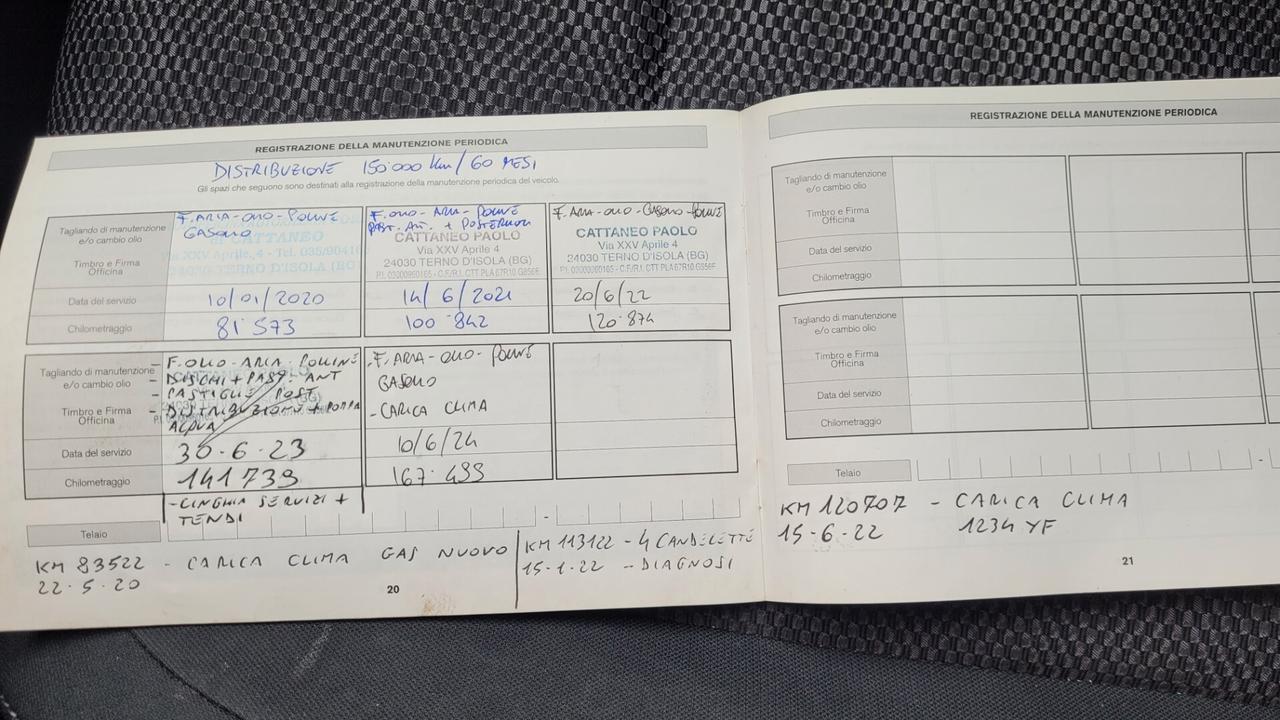 REGISTRAZIONE DELLA MANUTENZIONE PERIODICA
DISTRIBUZIONE 150'000 km/60 MESI
Gli spazi che seguono sono destinati alla registrazione della manutenzione periodica del veicolo.
Tagliando di manutenzione
e/o cambio olio
Timbro e Firma
Officina
Data del servizio
Chilometraggio
F.ARIA-OLIO-POLLINE
GASOLIO
di CATTANEO
Via XXV Aprile, 4 - Tel.
24030 TERNO D'ISOLA (BG)
10/01/2020
81'573
F.OLIO-ARIA-POLLINE
PAST. ANT. + POSTERIORI
CATTANEO PAOLO
Via XXV Aprile 4
24030 TERNO D'ISOLA (BG)
14/6/2021
100'842
F.ARIA-OLIO-GASOLIO-POLLINE
CATTANEO PAOLO
Via XXV Aprile 4
24030 TERNO D'ISOLA (BG)
20/6/22
120'874
Tagliando di manutenzione
e/o cambio olio
Timbro e Firma
Officina
Data del servizio
Chilometraggio
- F.OLIO-ARIA-POLLINE
- DISCHI + PAST. ANT
- PASTIGLIE POST
- DISTRIBUZIONE + POMPA
ACQUA
30-6-23
141739
- CINGHIA SERVIZI +
TENDI
- F.ARIA-OLIO-POLLINE
GASOLIO
- CARICA CLIMA
10/6/24
167'499
Telaio
KM 83522 - CARICA CLIMA GAS NUOVO
22-5-20
KM 113122 - 4 CANDELETTE
15-1-22 - DIAGNOSI
20
REGISTRAZIONE DELLA MANUTENZIONE PERIODICA
Tagliando di manutenzione
e/o cambio olio
Timbro e Firma
Officina
Data del servizio
Chilometraggio
Tagliando di manutenzione
e/o cambio olio
Timbro e Firma
Officina
Data del servizio
Chilometraggio
Telaio
KM 120707 - CARICA CLIMA
15-6-22 1234 YF
21